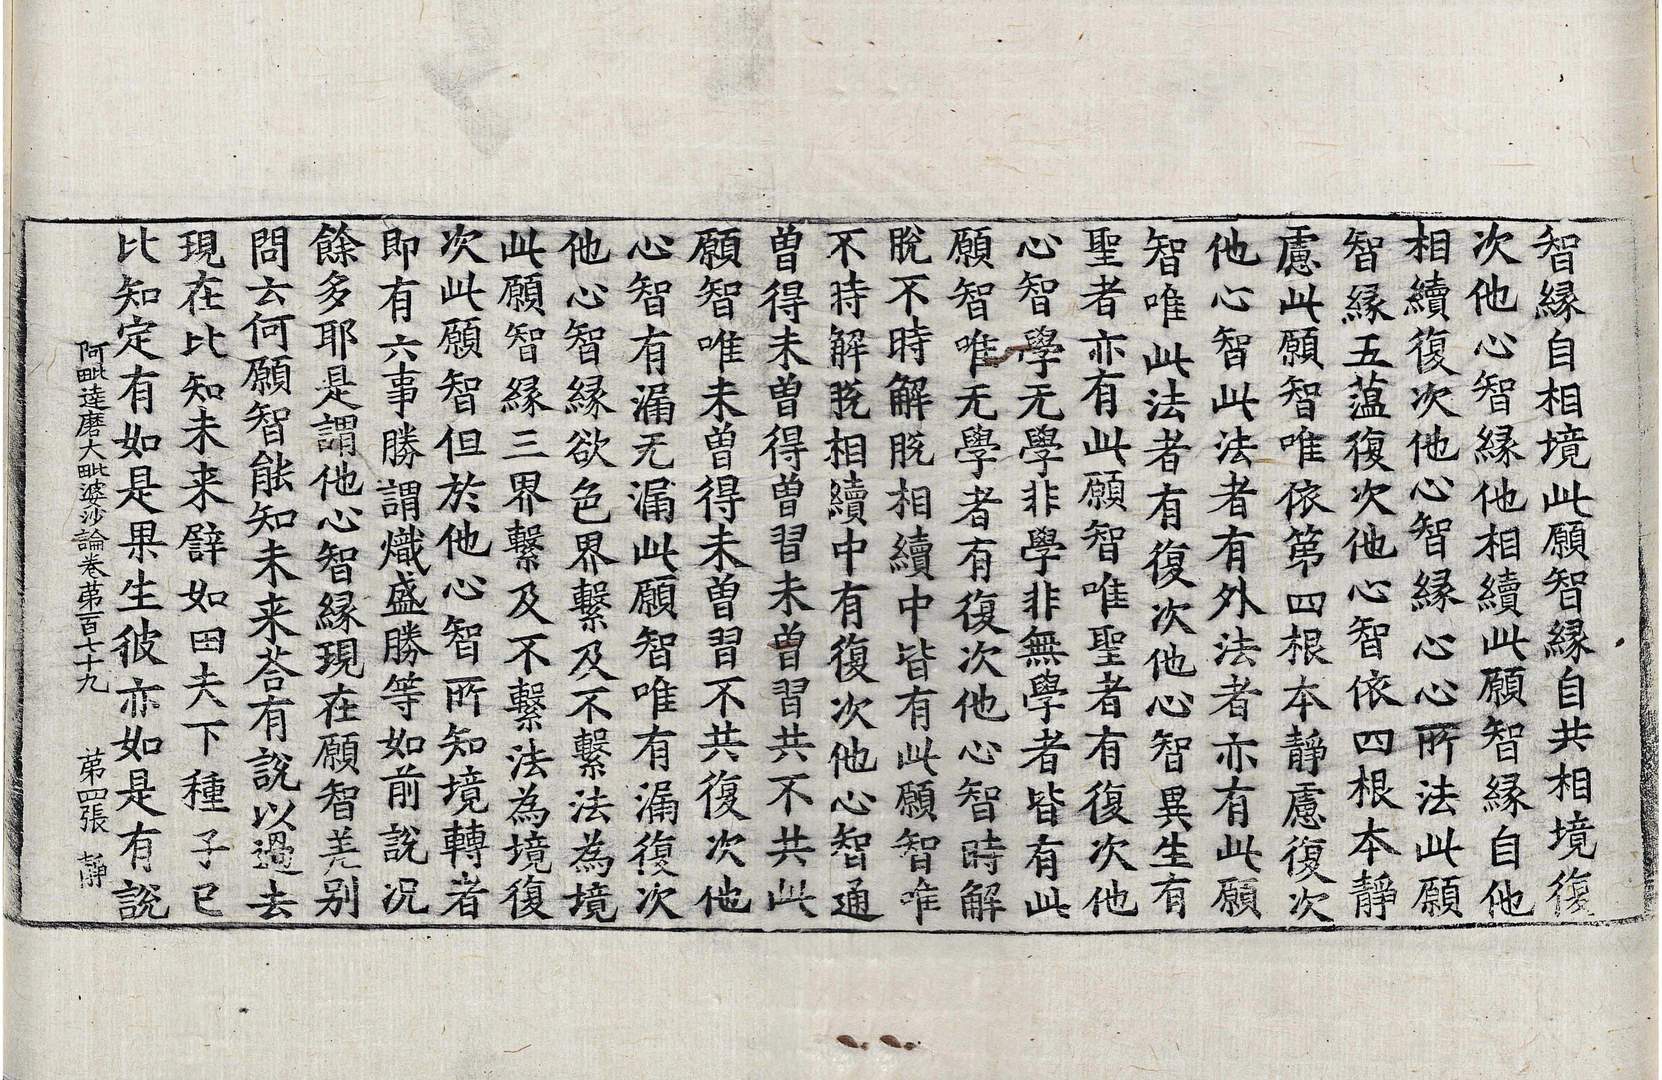 智緣自相境此願智緣自共相境復
次他心智緣他相續此願智緣自他
相續復次他心智緣心心所法此願
智緣五蘊復次他心智依四根本靜
慮此願智唯依第四根本靜慮復次
他心智此法者有外法者亦有此願
智唯此法者有復次他心智異生有
聖者亦有此願智唯聖者有復次他
心智學无學非學非無學者皆有此
願智唯无學者有復次他心智時解
脫不時解脫相續中皆有此願智唯
不時解脫相續中有復次他心智通
曾得未曾得曾習未曾習共不共此
願智唯未曾得未曾習不共復次他
心智有漏无漏此願智唯有漏復次
他心智緣欲色界繫及不繫法為境
此願智緣三界繫及不繫法為境復
次此願智但於他心智所知境轉者
即有六事勝謂熾盛勝等如前說況
餘多耶是謂他心智緣現在願智差别
問云何願智能知未来荅有說以過去
現在比知未来譬如田夫下種子已
比知定有如是果生彼亦如是有說
阿毗達磨大毗婆沙論卷第百七十九 第四張 靜